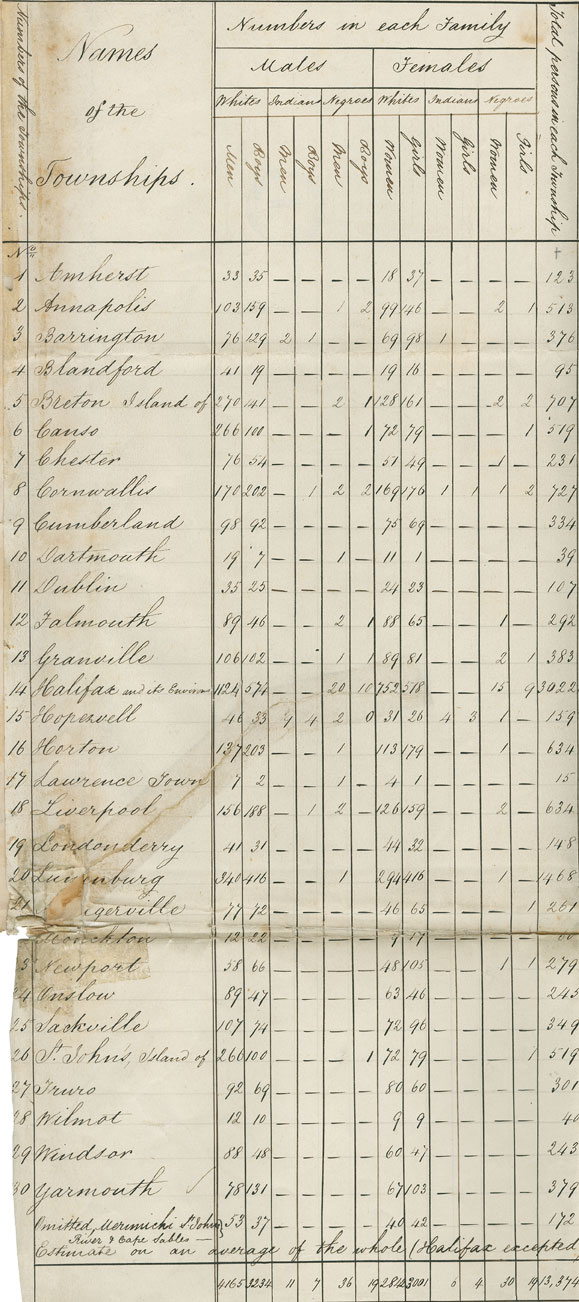 Numbers of the Townships.
Names
of the
Townships.
Numbers in each Family
Males Females
Whites Indians Negroes Whites Indians Negroes
Men Boys Men Boys Men Boys Women Girls Women Girls Women Girls
Total persons in each Township
No
1 Amherst 33 35 — — — — 18 37 — — — — 123
2 Annapolis 103 159 — — 1 2 99 146 — — 2 1 513
3 Barrington 76 129 2 1 — — 69 98 1 — — — 376
4 Blandford 41 19 — — — — 19 16 — — — — 95
5 Breton Island of 270 141 — — 2 1 128 161 — — 2 2 707
6 Canso 266 100 — — — 1 72 79 — — — 1 519
7 Chester 76 54 — — — — 51 49 — — 1 — 231
8 Cornwallis 170 202 — 1 2 2 169 176 1 1 1 2 727
9 Cumberland 98 92 — — — — 75 69 — — — — 334
10 Dartmouth 19 7 — — 1 — 11 1 — — — — 39
11 Dublin 35 25 — — — — 24 23 — — — — 107
12 Falmouth 89 46 — — 2 1 88 65 — — 1 — 292
13 Granville 106 102 — — 1 1 89 81 — — 2 1 383
14 Halifax and its Environs 1124 574 — — 20 10 752 518 — — 15 9 3022
15 Hopewell 46 33 4 2 0 31 26 4 3 1 — 159
16 Horton 137 203 — — 1 113 179 — — 1 — 634
17 Lawrence Town 7 2 — — 1 — 4 1 — — — — 15
18 Liverpool 156 188 — 1 2 — 126 159 — — 2 — 634
19 Londonderry 41 31 — — — — 44 32 — — — — 148
20 Lunenburg 340 416 — — 1 294 416 — — 1 — 1468
21 gerville 77 72 — — — — 46 65 — — — 1 261
Monckton 12 22 — — — — 9 17 — — — —
3 Newport 58 66 — — — — 48 105 — — 1 1 279
4 Onslow 89 47 — — — — 63 46 — — — — 245
25 Sackville 107 74 — — — — 72 96 — — — — 349
26 St. John's, Island of 266 100 — — — 1 72 79 — — — 1 519
27 Truro 92 69 — — — — 80 60 — — — — 301
28 Wilmot 12 10 — — — — 9 9 — — — — 40
29 Windsor 88 48 — — — — 60 47 — — — — 243
30 Yarmouth 78 131 — — — — 67 103 — — — — 379
Omitted, Merimichi St John 53 37 — — — — 40 42 — — — — 172
River & Cape Sables —
Estimate on an average of the whole (Halifax excepted
4165 3234 11 7 36 19 2842 3001 6 4 30 19 13,374